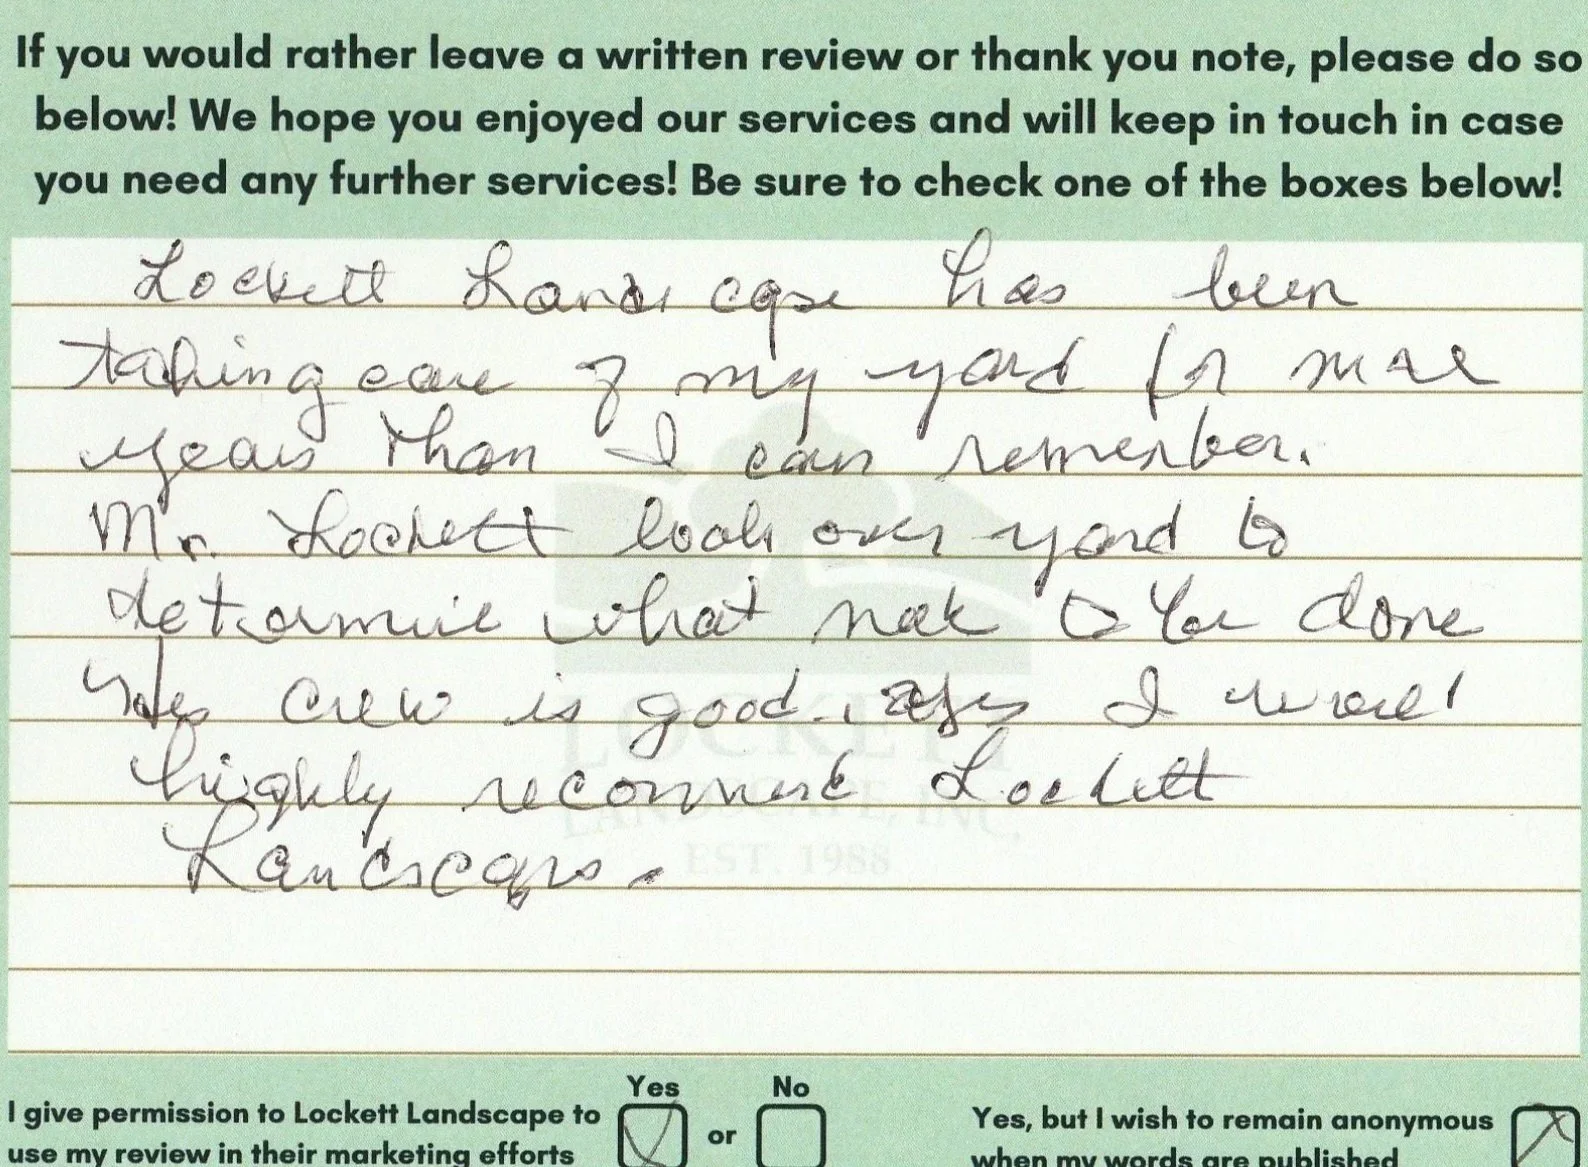 If you would rather leave a written review or thank you note, please do so
below! We hope you enjoyed our services and will keep in touch in case
you need any further services! Be sure to check one of the boxes below!
Lockett Landscape has been
taking care of my yard for more
years than I can remember.
Mr. Lockett look over yard to
determine what need to be done
His crew is good. I would
highly recommend Lockett
Landscape.
LOCKETT
LANDSCAPE, INC.
EST. 1988
Yes No
I give permission to Lockett Landscape to
use my review in their marketing efforts
or
Yes, but I wish to remain anonymous
when my words are published